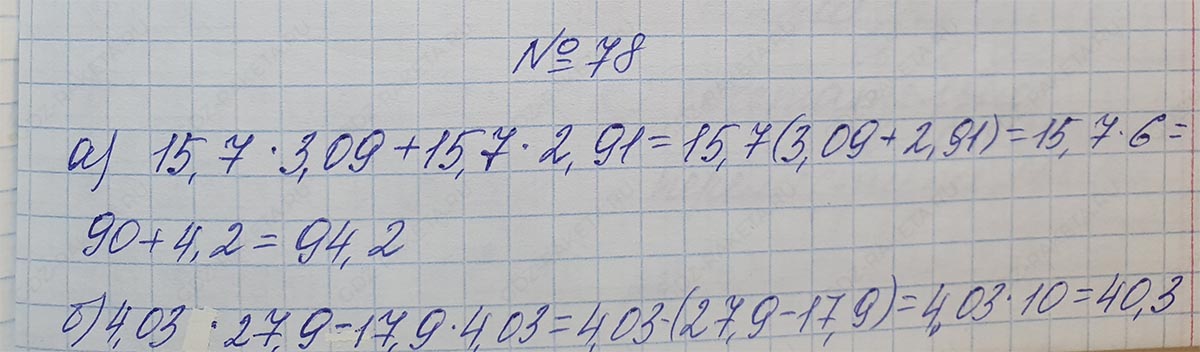 № 78
а) 15,7 · 3,09 + 15,7 · 2,91 = 15,7(3,09 + 2,91) = 15,7 · 6 =
90 + 4,2 = 94,2
б) 4,03 · 27,9 - 17,9 · 4,03 = 4,03 · (27,9 - 17,9) = 4,03 · 10 = 40,3